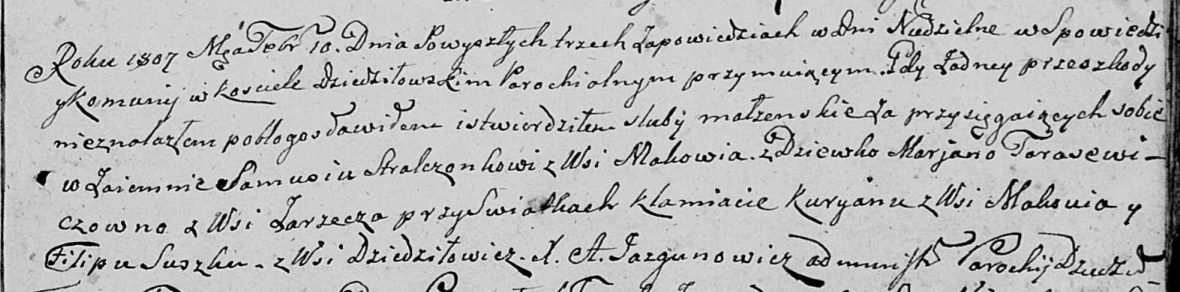 Roku 1807 Mca Febr 10. Dnia Powyszłych trzech Zapowiedziach w dni Niedzielne w Spowiedzi
y Komunij w kosciele Dziedziłowskim Parochialnym przymuiącym. Gdy Zadney przeszkody
nieznalazłem pobłogosławiłem i stwierdziłem sluby małzenskie Za przysięgaiących sobie
w Zaiemnie Samusiu Stralczonkowi z Wsi Makowia. z Dziewko Marjano Tarasewi-
czowno z Wsi Zarzecza przy Swiatkach Klamiacie Kuryanu z Wsi Makovia y
Filipu Suszku. z Wsi Dziedziłowicz. X. A. Jazgunowicz administr Parochij Dziedził